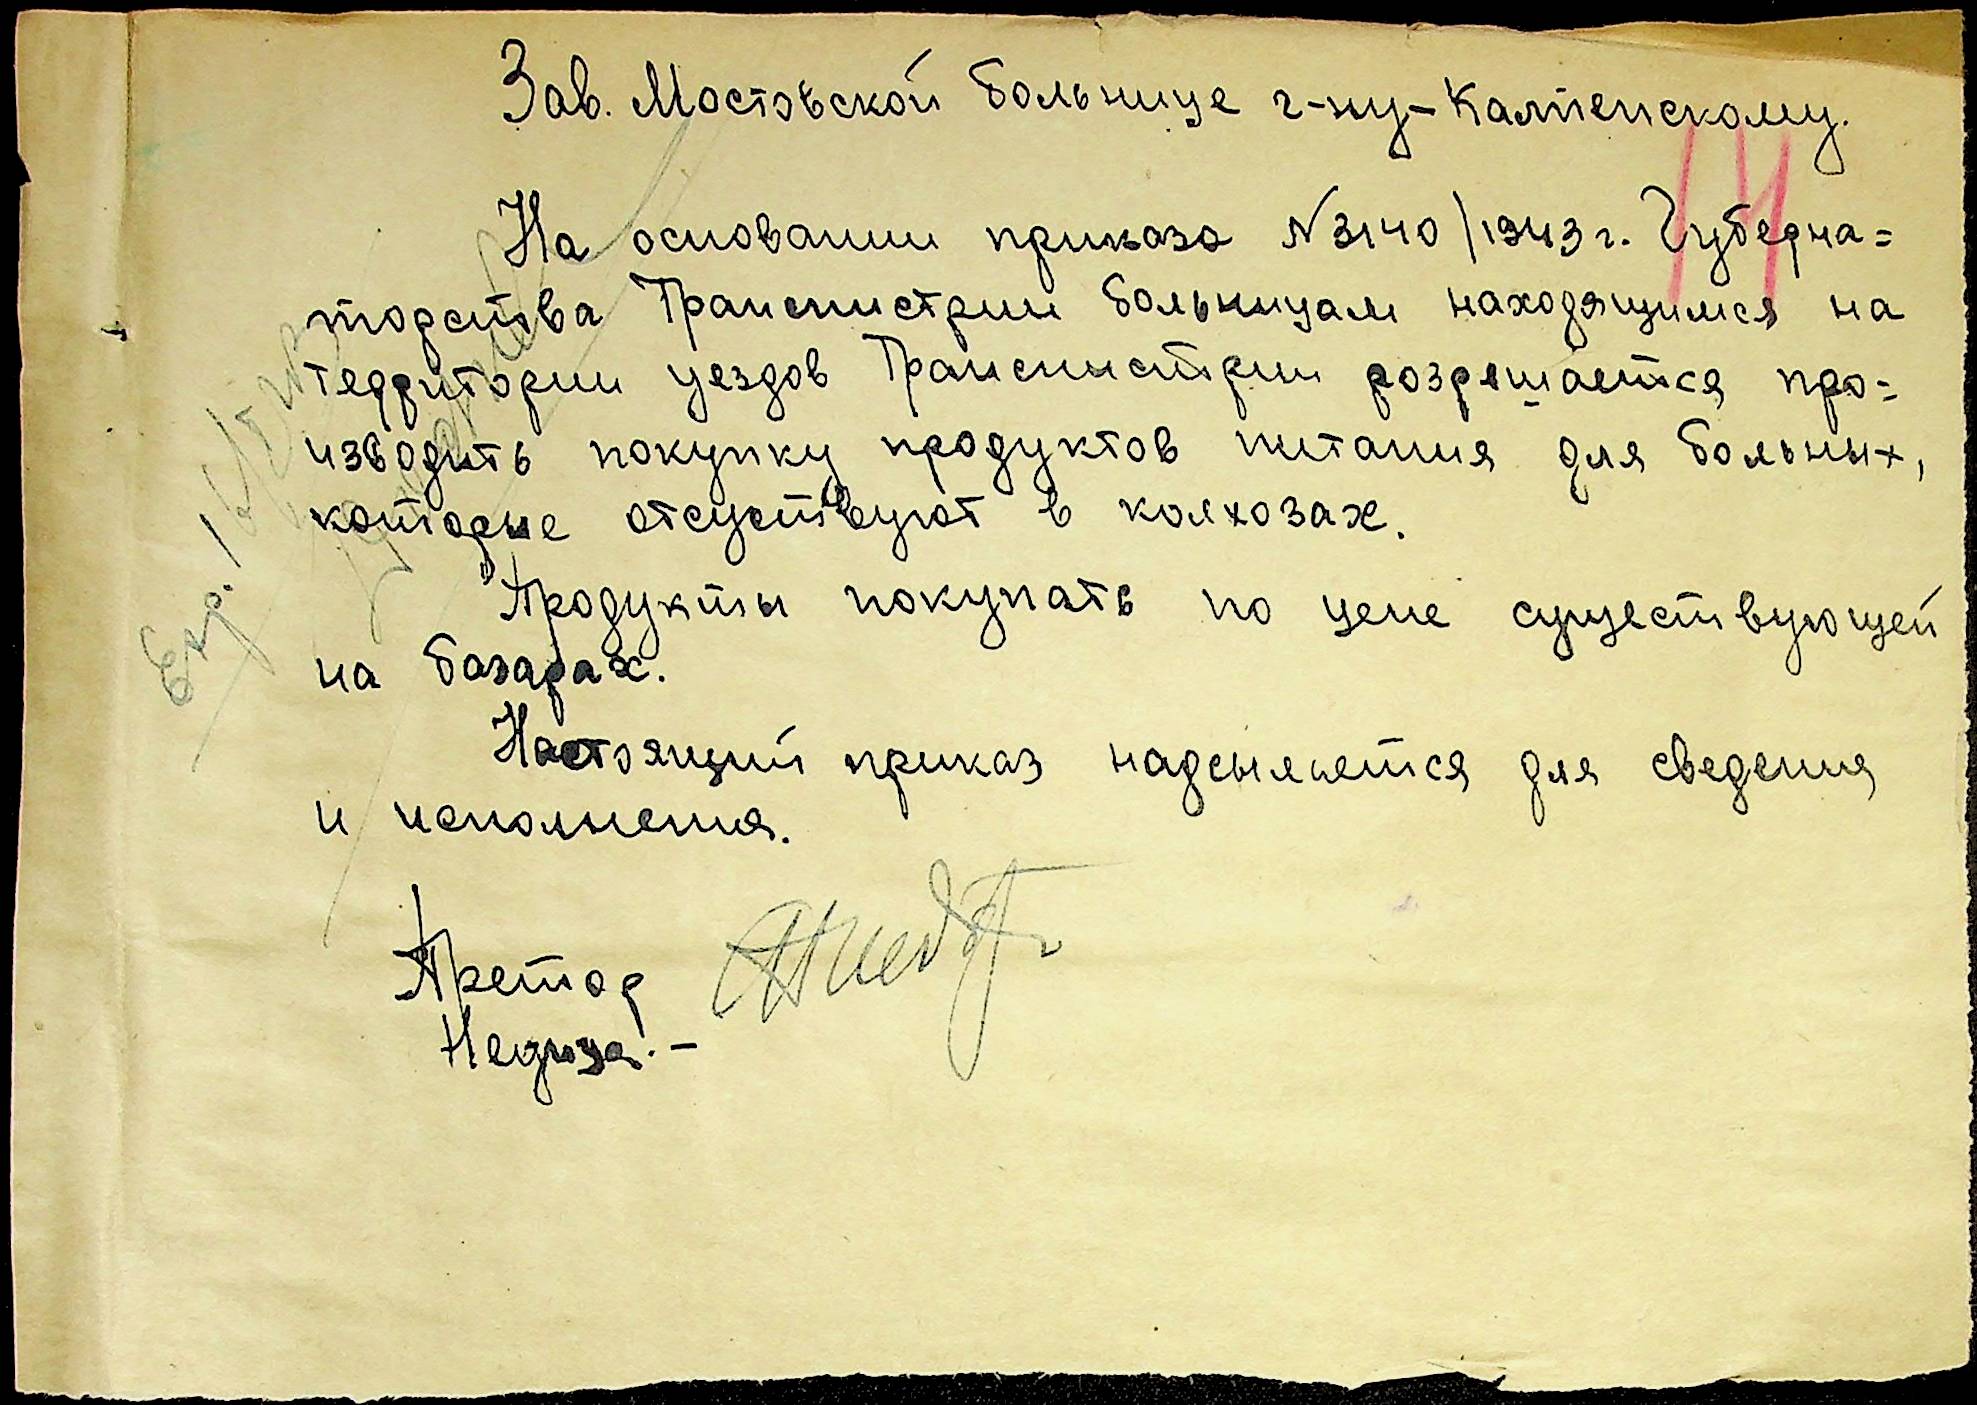 Зав. Мостовской больнице г-ну-Каменскому.
На основании приказа N3140/1943г. Губерна=
торства Транснистрии больницам находящимся на
территории уездов Транснистрии розрешается про=
изводить покупку продуктов питания для больных,
которые отсутствуют в колхозах.
Продукты покупать по цене существующей
на базарах.
Настоящий приказ надсылается для сведения
и исполнения.
Претор